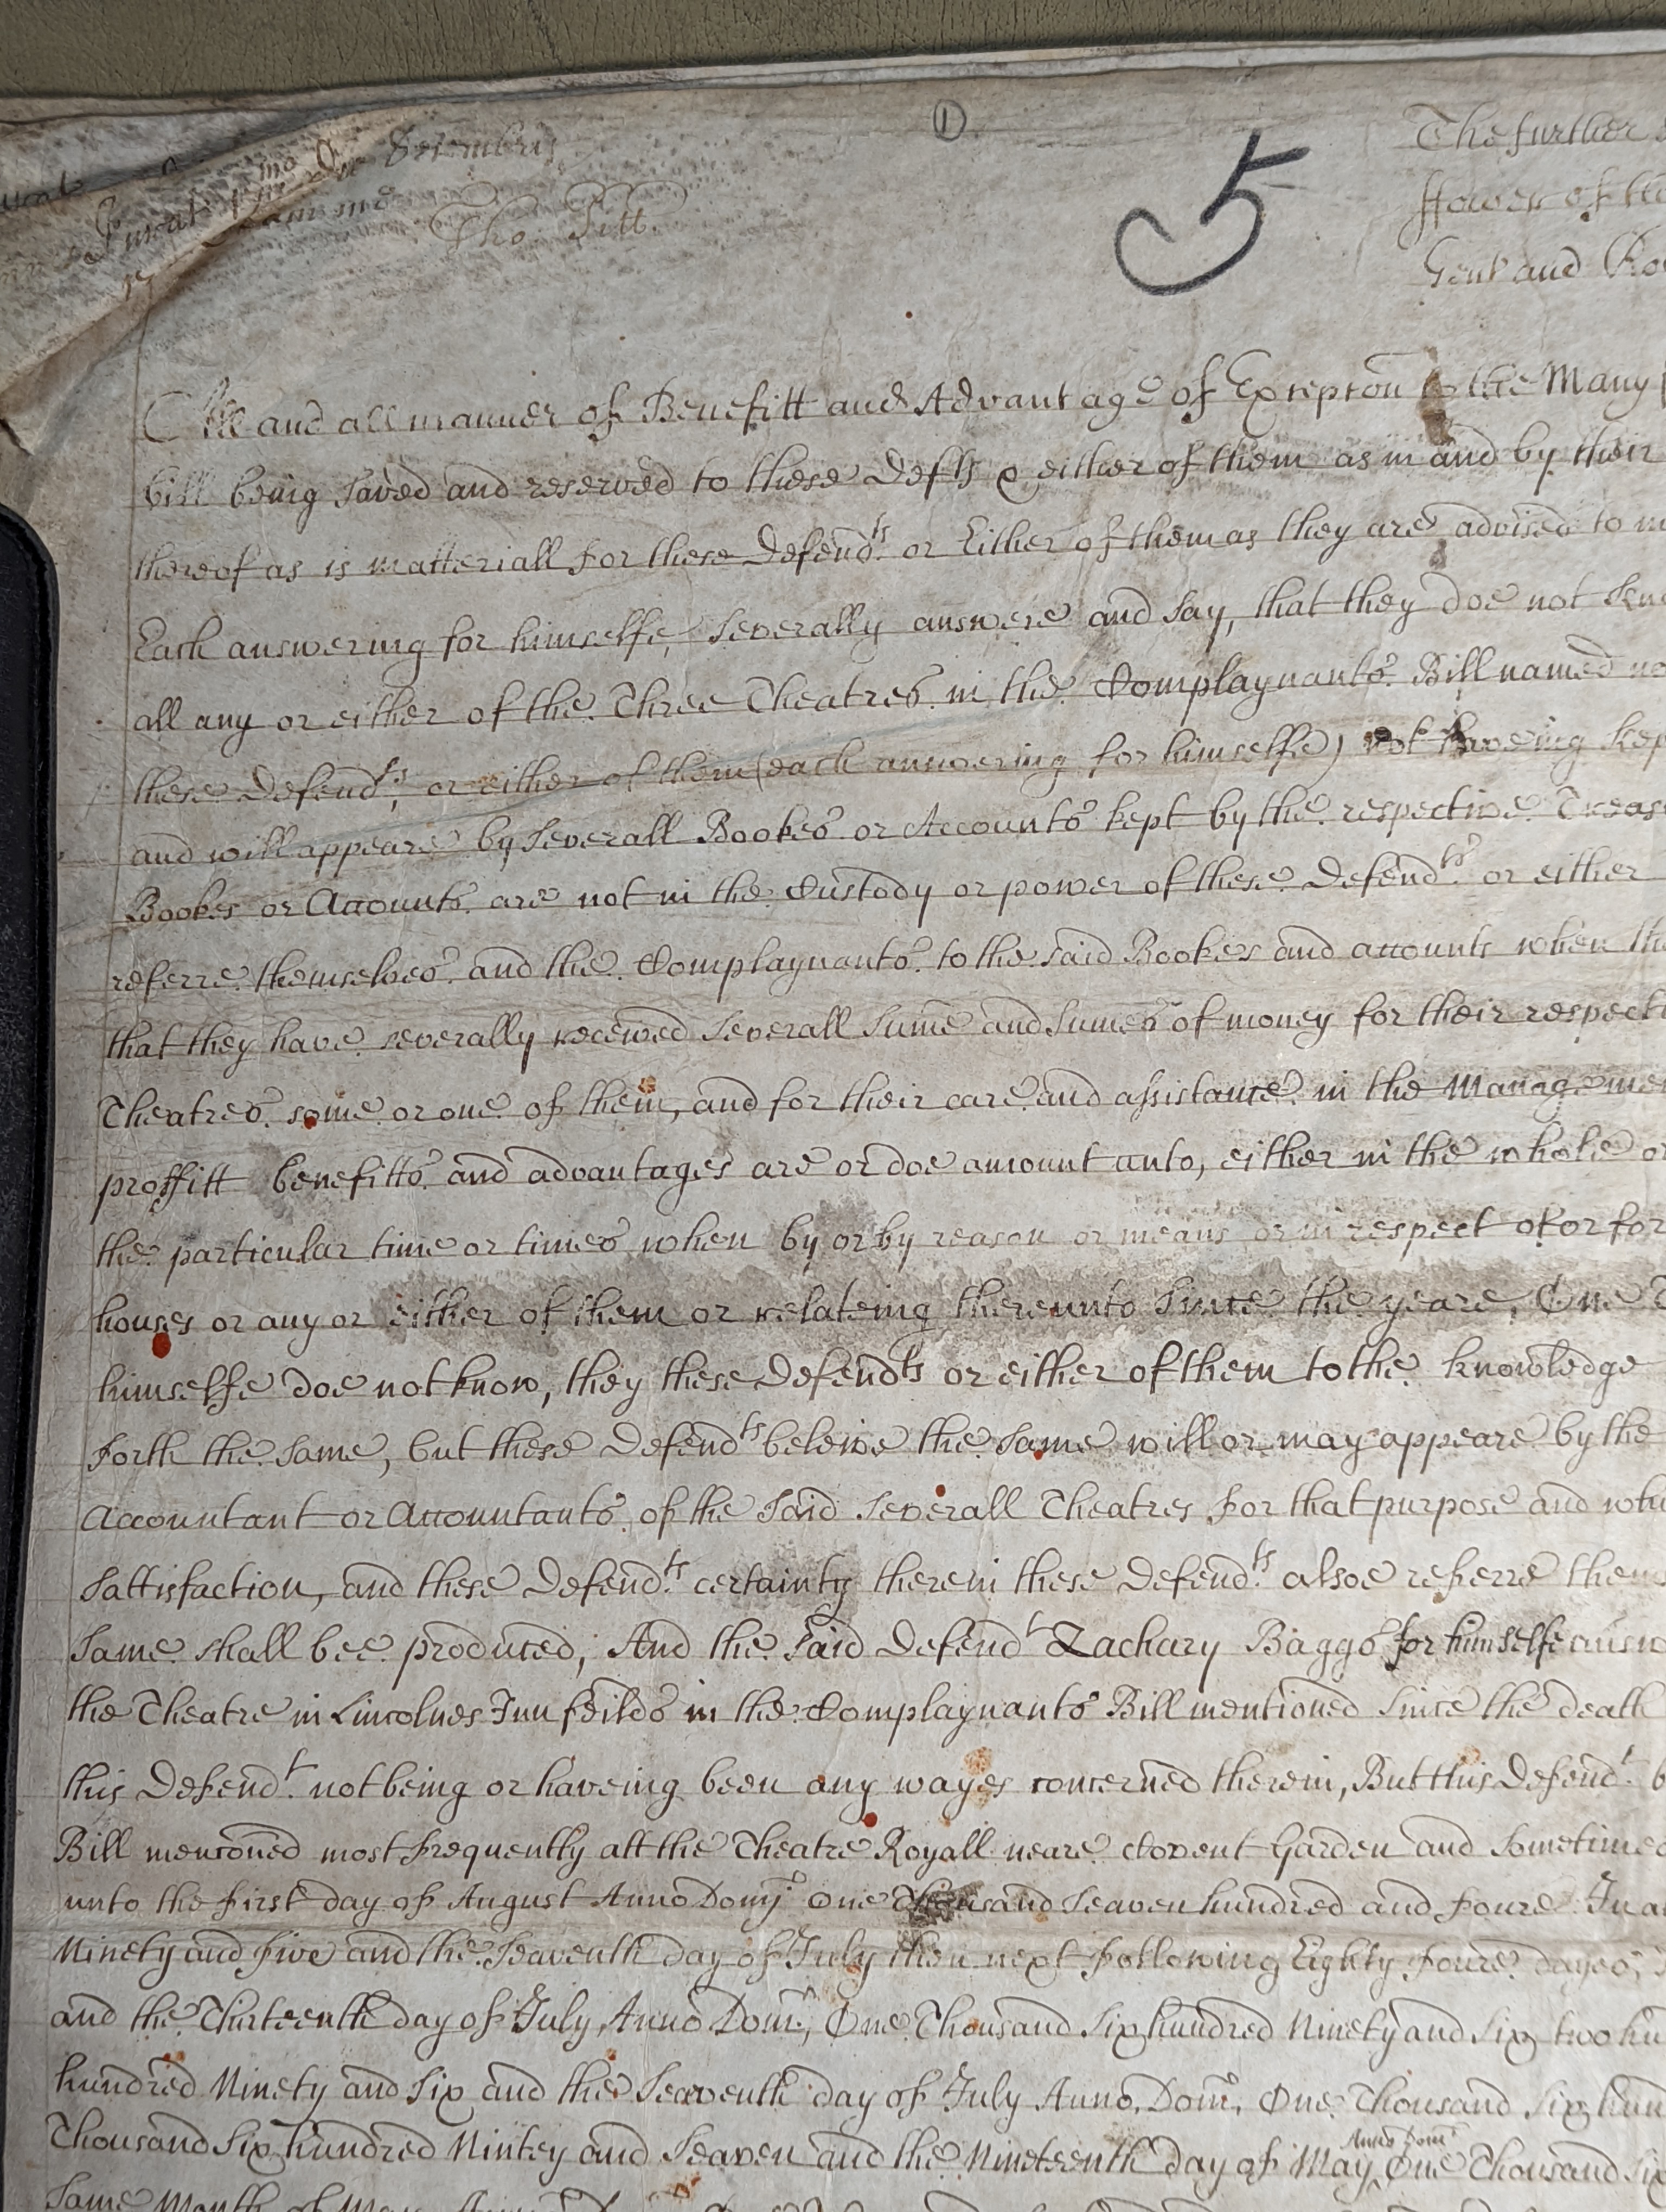 ①
5
Decembris
Tho: Pitt
The further
Gent and
All and all manner of Benefitt and Advantage of Excepcon to the Many
bill being saved and reserved to these Defts & either of them as in and by their
thereof as is matteriall for these Defendts. or Either of them as they are advised to
Each answering for himselfe, severally answere and say, that they doe not
all any or either of the Three Theatres in the Complaynants Bill named
these Defendts, or either of them (each answering for himselfe) not haveing
and will appeare by severall Bookes or Accounts kept by the respective
Bookes or Accounts are not in the Custody or power of these Defendts. or either
referre themselves and the Complaynants to the said Bookes and accounts when
that they have severally received severall Sume and Sumes of money for their
Theatres some or one of them, and for their care and assistance in the
proffitt benefitts and advantages are or doe amount unto, either in the whole or
the particular time or times when by or by reason or means or in respect of or for
houses or any or either of them or relateing thereunto since the yeare, One
himselfe doe not know, they these Defendts or either of them to the knowledge
forth the same, but these Defendts beleive the same will or may appeare by the
Accountant or Accountants of the said severall Theatres for that purpose and
Sattisfaction, and these Defendts. certainty therein these Defendts. alsoe referre
same shall bee produced; And the said Defendt Zachary Baggs for himselfe
the Theatre in Lincolnes Inn feilds in the Complaynants Bill mentioned since the death
this Defendt. not being or haveing been any wayes concerned therein, But this Defendt.
Bill menconed most frequently att the Theatre Royall neare Covent Garden and sometimes
unto the first day of August Anno Domj One Thousand Seaven hundred and foure
Ninety and five and the Seaventh day of July then next following Eighty foure dayes;
and the Thirteenth day of July, Anno Dom, One Thousand Six hundred Ninety and Six two
hundred Ninety and Six and the Seaventh day of July Anno Dom, One Thousand Six
Thousand Six hundred Nintey and Seaven and the Nineteenth day of May Anno Dom One Thousand
same Month of May